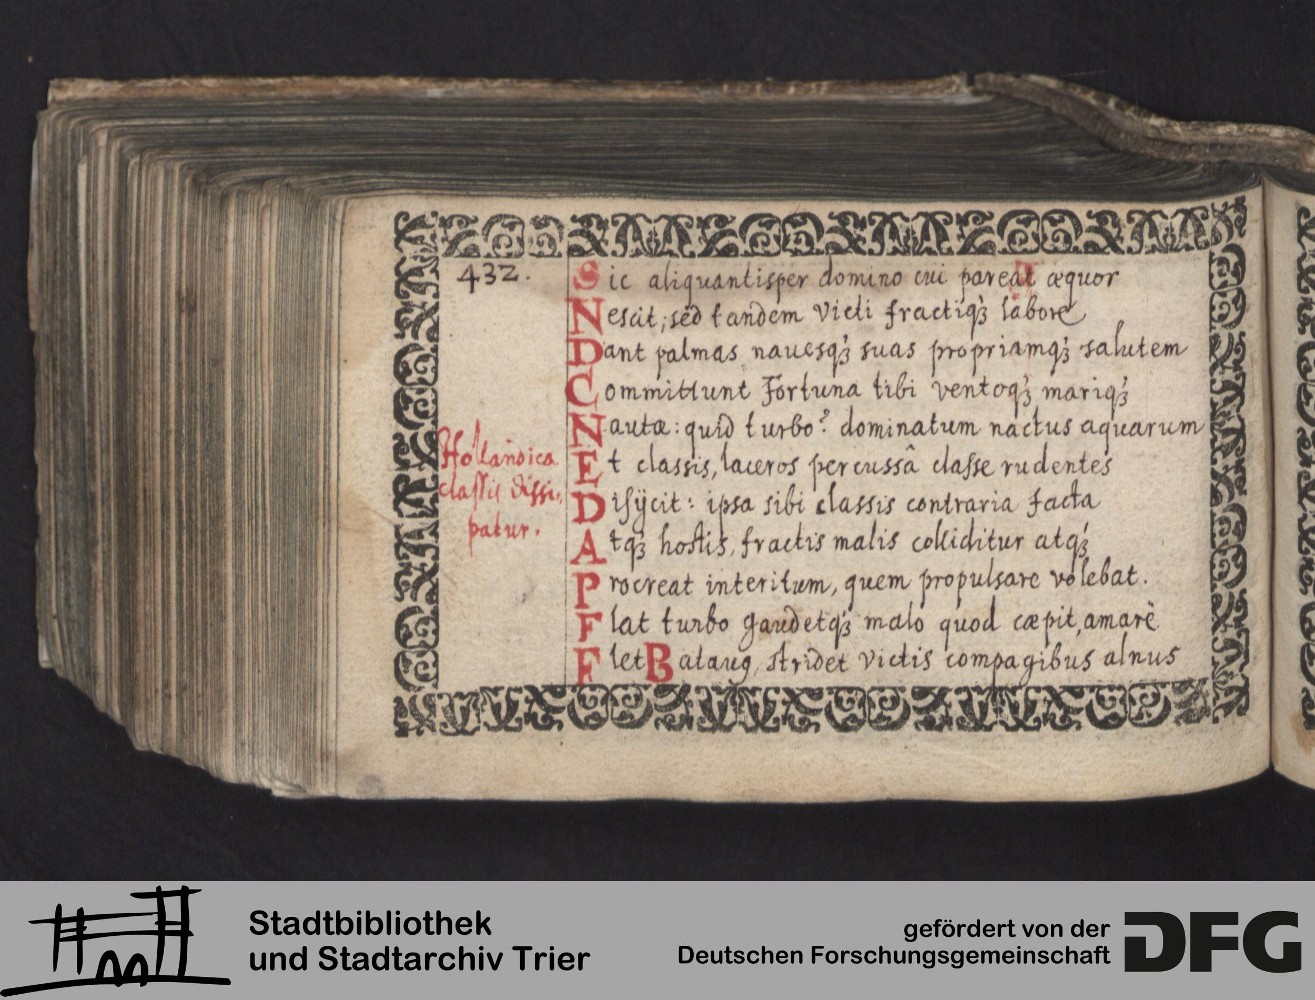 432.
Sic aliquantisper domino cui pareat æquor
Nescit; sed tandem victi fractiqꝫ labore
Dant palmas navesqꝫ suas propriamqꝫ salutem
Committunt Fortuna tibi ventoqꝫ mariqꝫ
Nautæ: quid turbo? dominatum nactus aquarum
Et classis, laceros percussâ classe rudentes
Disijcit: ipsa sibi classis contraria facta
Atqꝫ hostis, fractis malis colliditur atqꝫ
Procreat interitum, quem propulsare volebat.
Flat turbo gaudetqꝫ malo quod cæpit, amarè
Flet Batavꝰ, stridet victis compagibus alnus
Hollandica
classis dissi,
patur.
Stadtbibliothek
und Stadtarchiv Trier
gefördert von der
Deutschen Forschungsgemeinschaft
DFG